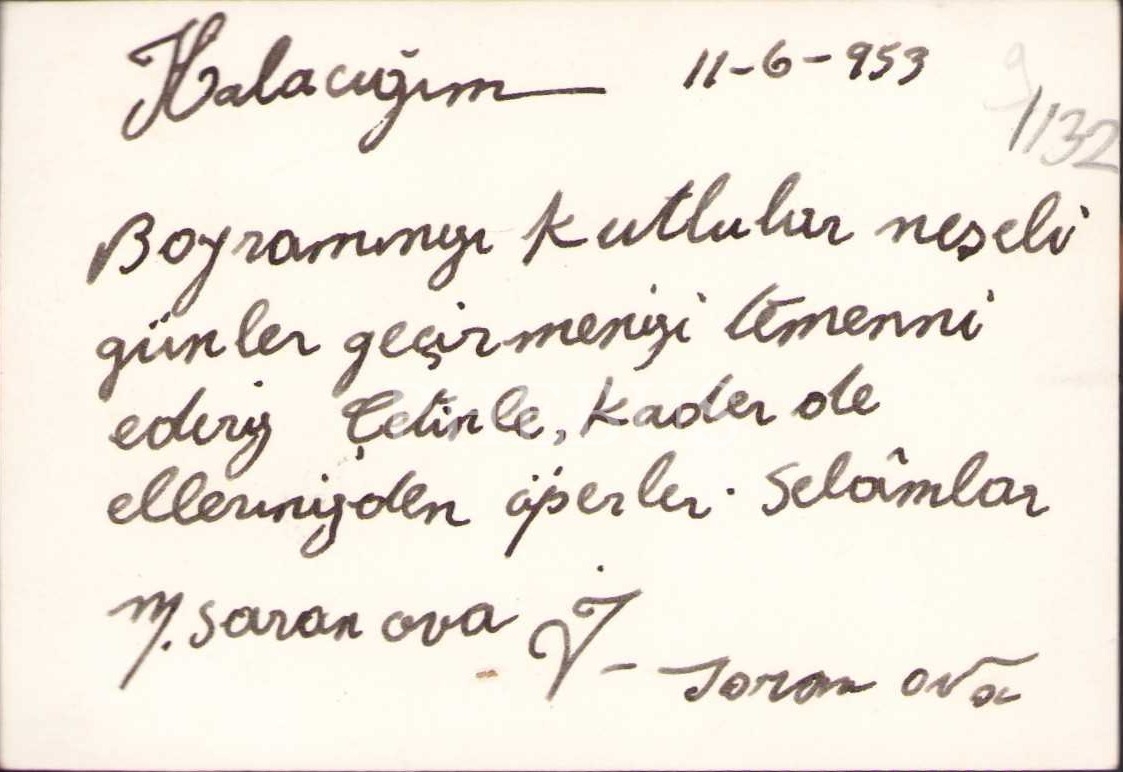 Halacığım 11-6-953
1132
Bayramınızı kutlular neşeli
günler geçirmenizi temenni
ederiz Çetinle, Kader de
ellerinizden öperler. Selâmlar
M. Saran ova İ - Saran ova